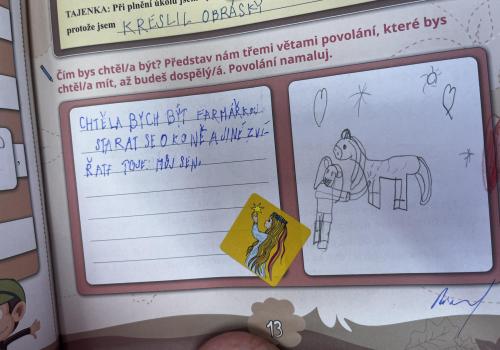 TAJENKA: Při plnění úkolů jsem
protože jsem KRESLIL OBRÁSKY
Čím bys chtěl/a být? Představ nám třemi větami povolání, které bys
chtěl/a mít, až budeš dospělý/á. Povolání namaluj.
CHTĚLA BYCH BÝT FARMÁŘKOU
STARAT SE O KONĚ A JINÉ ZVÍ-
ŘATA TOJE MŮJ SEN.
13